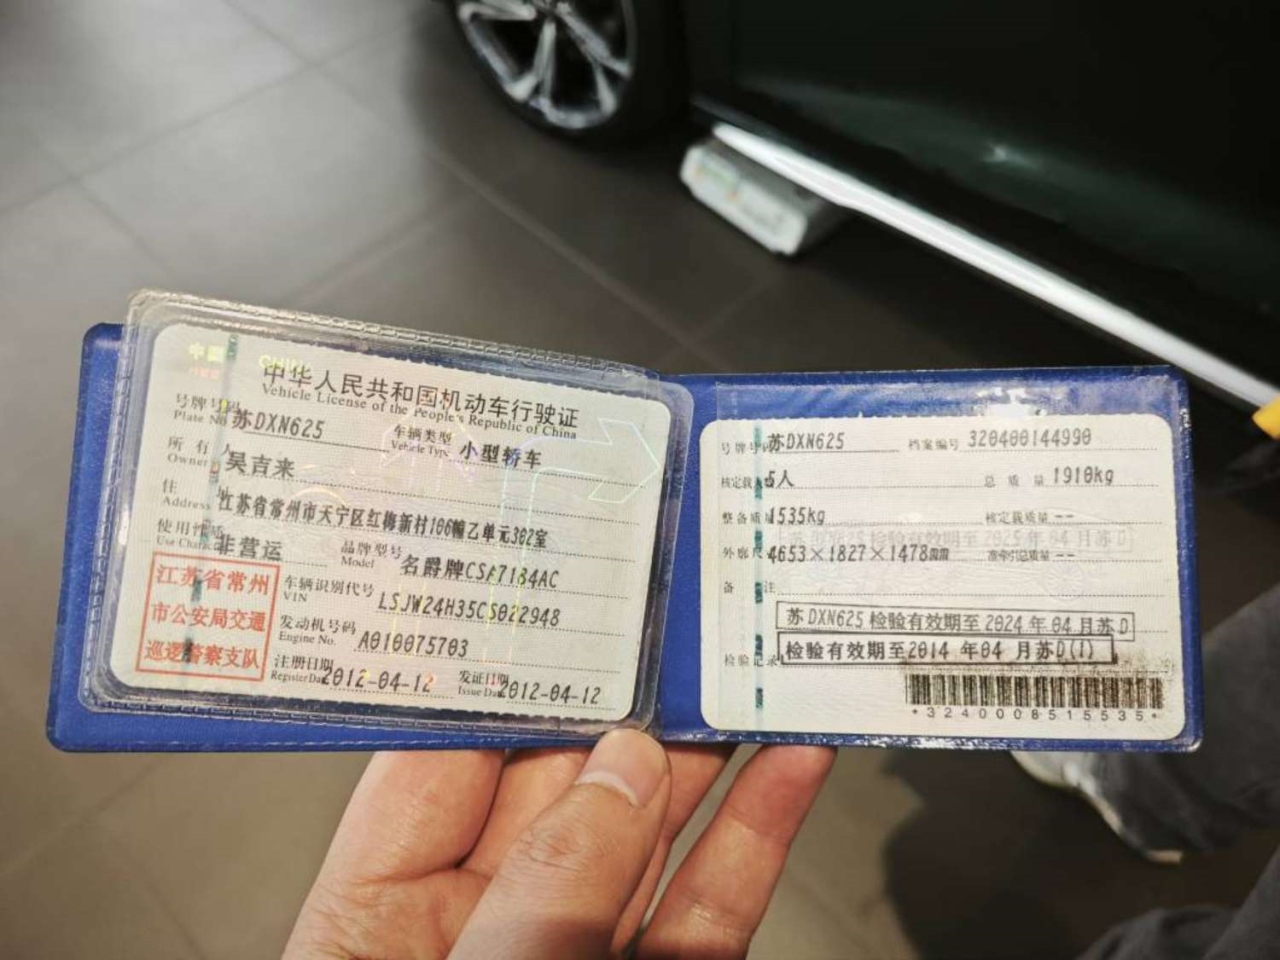 中国 CHINA
中华人民共和国机动车行驶证
Vehicle License of the People's Republic of China
号牌号码 苏DXN625 车辆类型 小型轿车
Plate No. Vehicle Type
所有人 吴吉来
Owner
住 江苏省常州市天宁区红梅新村106幢乙单元302室
Address
使用性质 非营运 品牌型号 名爵牌CSA7184AC
Use Character Model
江苏省常州
市公安局交通
巡逻警察支队
车辆识别代号 LSJW24H35CS022948
VIN
发动机号码 A010075703
Engine No.
注册日期 2012-04-12 发证日期 2012-04-12
Register Date Issue Date
号牌号码 苏DXN625 档案编号 320400144990
核定载人 5人 总质量 1910kg
整备质量 1535kg 核定载质量 --
苏 检验有效期至2025年04月苏D
外廓尺 4653×1827×1478 准牵引总质量 --
备注
苏DXN625 检验有效期至 2024年04月苏D
检验记录 检验有效期至2014年04月苏D(1)
*3240008515535*